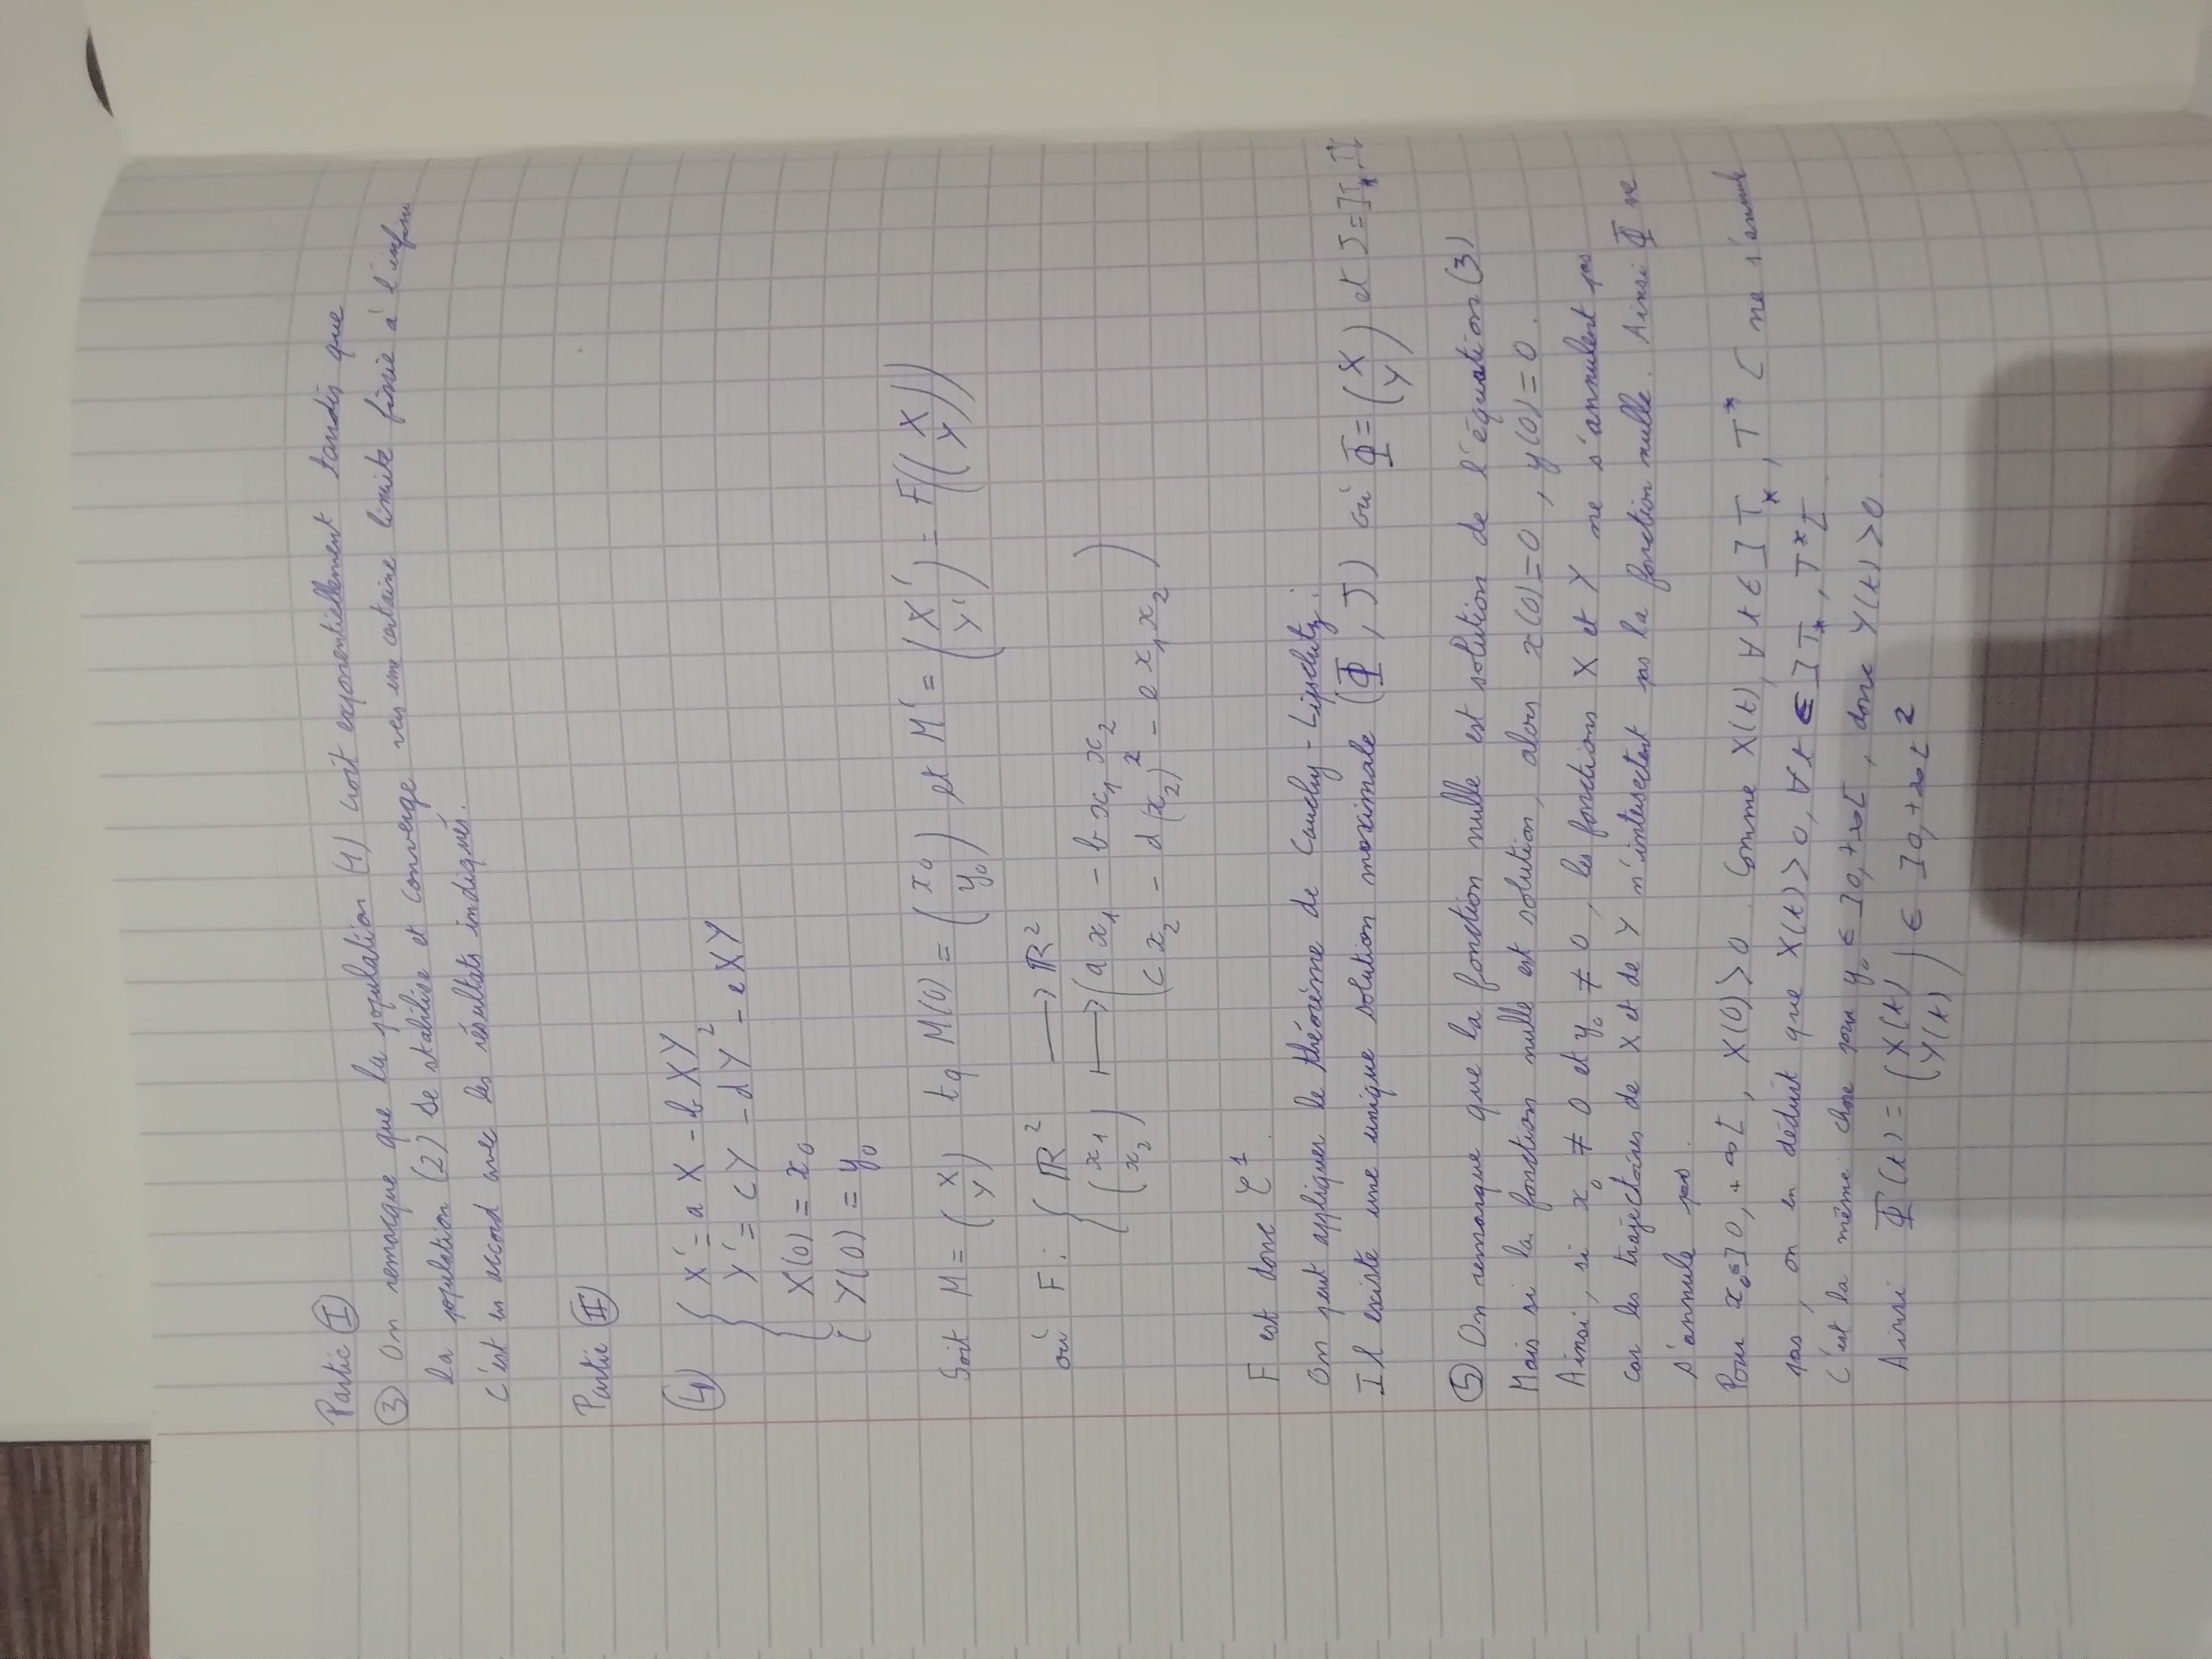 Partie I
③ On remarque que la population (1) croît exponentiellement tandis que
la population (2) se stabilise et converge vers une certaine limite finie à l'infini
c'est en accord avec les résultats indiqués.
Partie II
④ { X' = aX - bXY
Y' = cY - dY² - eXY
X(0) = x₀
Y(0) = y₀
Soit M = (X Y) tq M(0) = (x₀ y₀) et M' = (X' Y') = F((X Y))
où F : { ℝ² → ℝ²
(x₁ x₂) ↦ (ax₁ - bx₁x₂
cx₂ - d(x₂)² - ex₁x₂)
F est donc C¹.
On peut appliquer le théorème de Cauchy-Lipschitz :
Il existe une unique solution maximale (Φ, J) où Φ = (X Y) et J = ]T_*, T^*[
⑤ On remarque que la fonction nulle est solution de l'équation (3)
Mais si la fonction nulle est solution, alors x(0)=0, y(0)=0.
Ainsi, si x₀ ≠ 0 et y₀ ≠ 0, les fonctions X et Y ne s'annulent pas
car les trajectoires de X et de Y n'intersectent pas la fonction nulle. Ainsi Φ ne
s'annule pas.
Pour x₀ ∈ ]0, +∞[, X(0) > 0. Comme X(t), ∀ t ∈ ]T_*, T^*[ ne s'annule
pas, on en déduit que X(t) > 0, ∀ t ∈ ]T_*, T^*[
C'est la même chose pour y₀ ∈ ]0, +∞[, donc Y(t) > 0.
Ainsi Φ(t) = (X(t) Y(t)) ∈ ]0, +∞[²